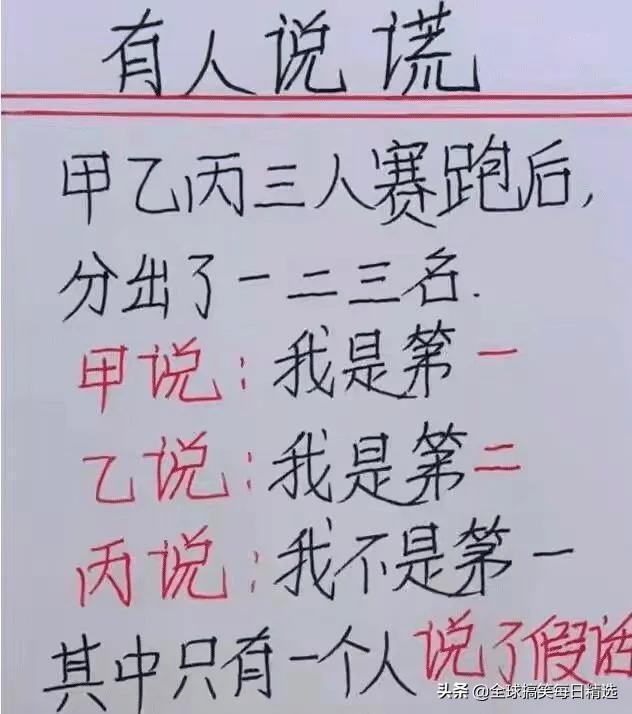 有人说谎
甲乙丙三人赛跑后,
分出了一二三名.
甲说:我是第一
乙说:我是第二
丙说:我不是第一
其中只有一个人说了假话
头条 @全球搞笑每日精选